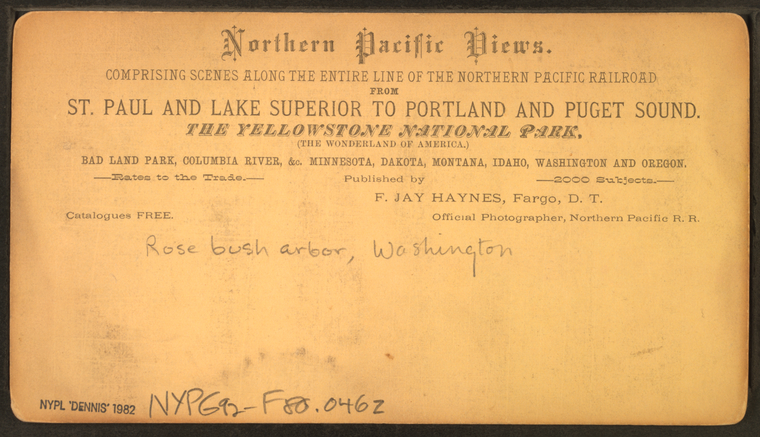 Northern Pacific Views.
COMPRISING SCENES ALONG THE ENTIRE LINE OF THE NORTHERN PACIFIC RAILROAD
FROM
ST. PAUL AND LAKE SUPERIOR TO PORTLAND AND PUGET SOUND.
THE YELLOWSTONE NATIONAL PARK,
(THE WONDERLAND OF AMERICA.)
BAD LAND PARK, COLUMBIA RIVER, &c. MINNESOTA, DAKOTA, MONTANA, IDAHO, WASHINGTON AND OREGON.
—Rates to the Trade.— Published by —2000 Subjects.—
F. JAY HAYNES, Fargo, D. T.
Catalogues FREE. Official Photographer, Northern Pacific R. R.
Rose bush arbor, Washington
NYPL 'DENNIS' 1982 NYPG92-F88.0462